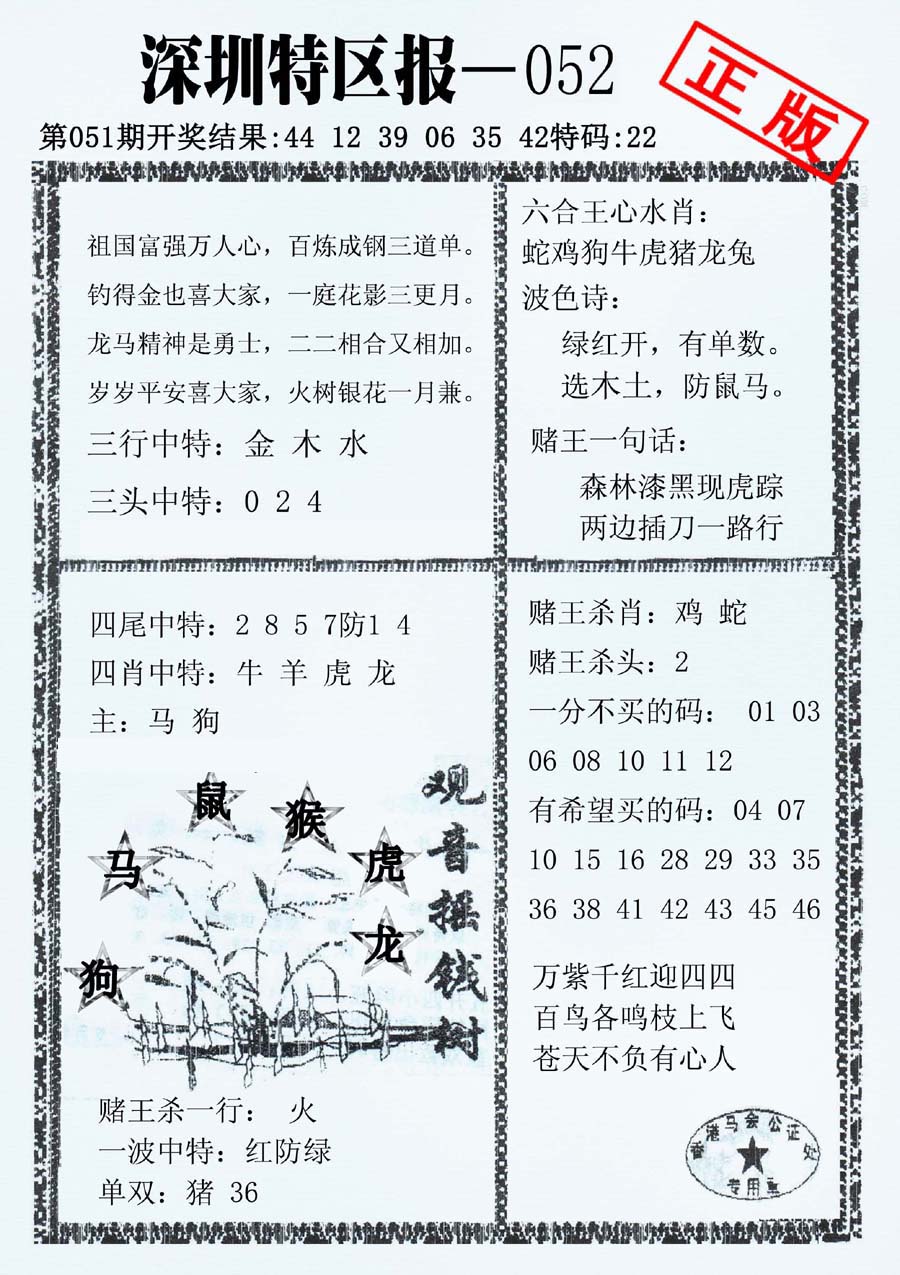 深圳特区报—052
正版
第051期开奖结果:44 12 39 06 35 42特码:22
祖国富强万人心，百炼成钢三道单。
钓得金也喜大家，一庭花影三更月。
龙马精神是勇士，二二相合又相加。
岁岁平安喜大家，火树银花一月兼。
三行中特：金 木 水
三头中特：0 2 4
六合王心水肖：
蛇鸡狗牛虎猪龙兔
波色诗：
绿红开，有单数。
选木土，防鼠马。
赌王一句话：
森林漆黑现虎踪
两边插刀一路行
四尾中特：2 8 5 7防1 4
四肖中特：牛 羊 虎 龙
主：马 狗
鼠
猴
马
虎
龙
狗
观音摇钱树
赌王杀一行： 火
一波中特：红防绿
单双：猪 36
赌王杀肖：鸡 蛇
赌王杀头：2
一分不买的码： 01 03
06 08 10 11 12
有希望买的码：04 07
10 15 16 28 29 33 35
36 38 41 42 43 45 46
万紫千红迎四四
百鸟各鸣枝上飞
苍天不负有心人
香港马会公证处
专用章